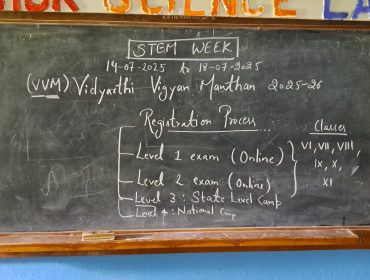 SCIENCE LA
STEM WEEK
14-07-2025 to 18-07-2025
(VVM) Vidyarthi Vigyan Manthan 2025-26
Registration Process...
Classes
Level 1 exam (Online)
VI, VII, VIII,
IX, X,
Level 2 exam (Online)
XI
Level 3 : State Level Camp
Level 4 : National Camp